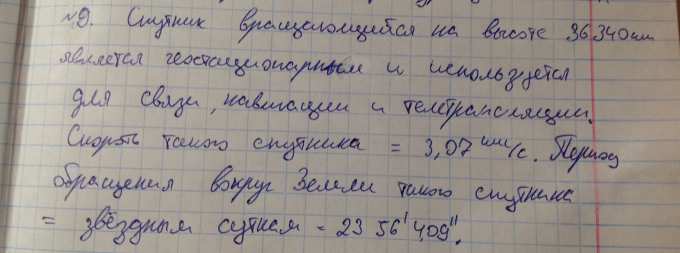 №9. Спутник вращающийся на высоте 36340км
является геостационарным и используется
для связи, навигации и телетрансляции.
Скорость такого спутника = 3,07 км/с. Период
обращения вокруг Земли такого спутника
= звёздным суткам = 23 56' 409".